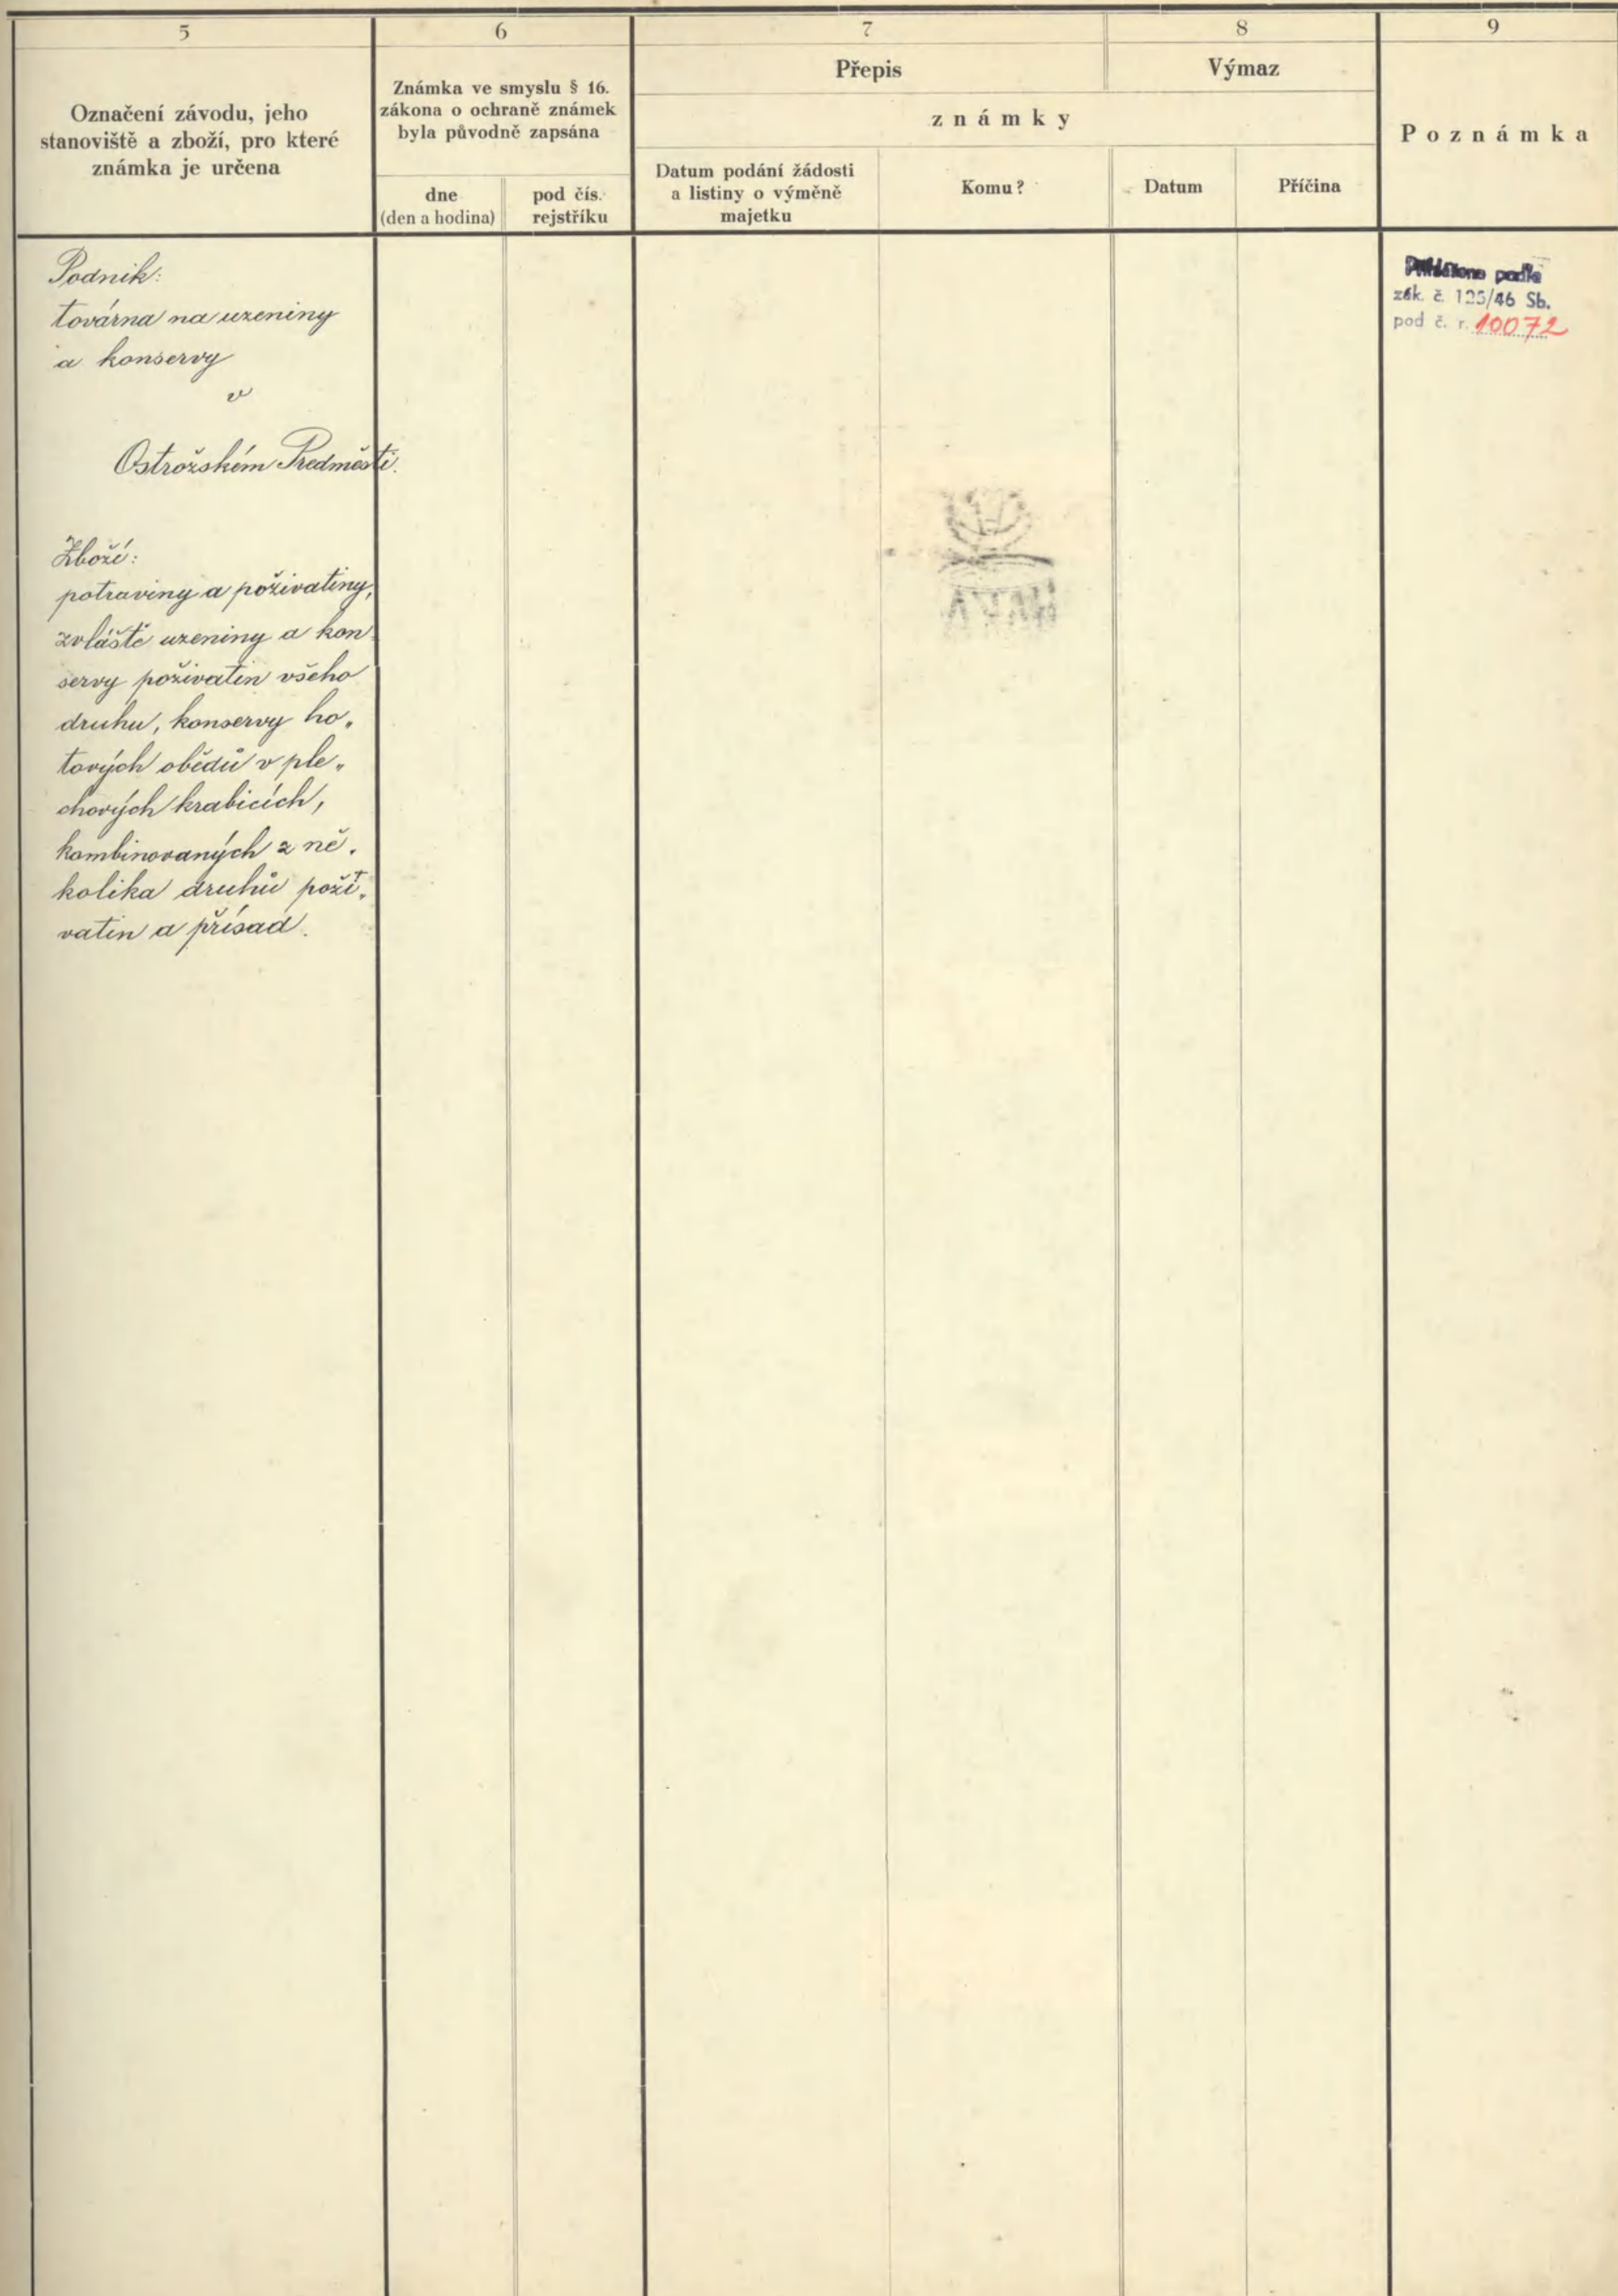 5
6
7
8
9
Označení závodu, jeho
stanoviště a zboží, pro které
známka je určena
Známka ve smyslu § 16.
zákona o ochraně známek
byla původně zapsána
dne
(den a hodina)
pod čís.
rejstříku
Přepis
Výmaz
známky
Datum podání žádosti
a listiny o výměně
majetku
Komu?
Datum
Příčina
Poznámka
Podnik:
továrna na uzeniny
a konservy
v
Ostrožském Předměstí.
Zboží:
potraviny a poživatiny,
zvláště uzeniny a kon
servy poživatin všeho
druhu, konservy ho„
tových obědů v ple„
chových krabicích,
kombinovaných z ně„
kolika druhů poži„
vatin a přísad.
podle
zák. č. 125/46 Sb.
pod č. r. 10072